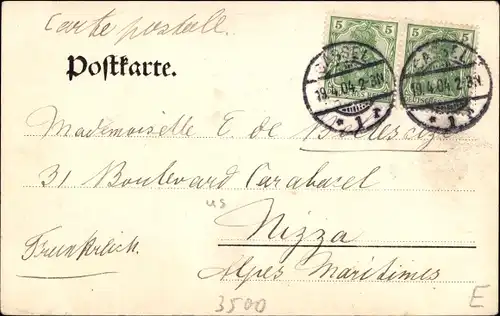 Carte postale.
5 5
Postkarte.
CASSEL
19.4.04. 2-3N
* 1 r
CASSEL
19.4.04. 2-3N
* 1 r
Mademoiselle E. de
31 Boulevard Carabacel
us
Nizza
Frankreich.
Alpes Maritimes
3500
E